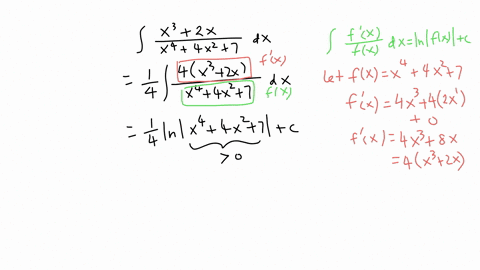 ∫ (x³ + 2x)/(x⁴ + 4x² + 7) dx
= 1/4 ∫ 4(x³+2x)/(x⁴+4x²+7) dx f'(x) f(x)
= 1/4 ln|x⁴+4x²+7| + c
> 0
∫ f'(x)/f(x) dx = ln|f(x)| + c
let f(x) = x⁴ + 4x² + 7
f'(x) = 4x³ + 4(2x¹)
+ 0
f'(x) = 4x³ + 8x
= 4(x³+2x)